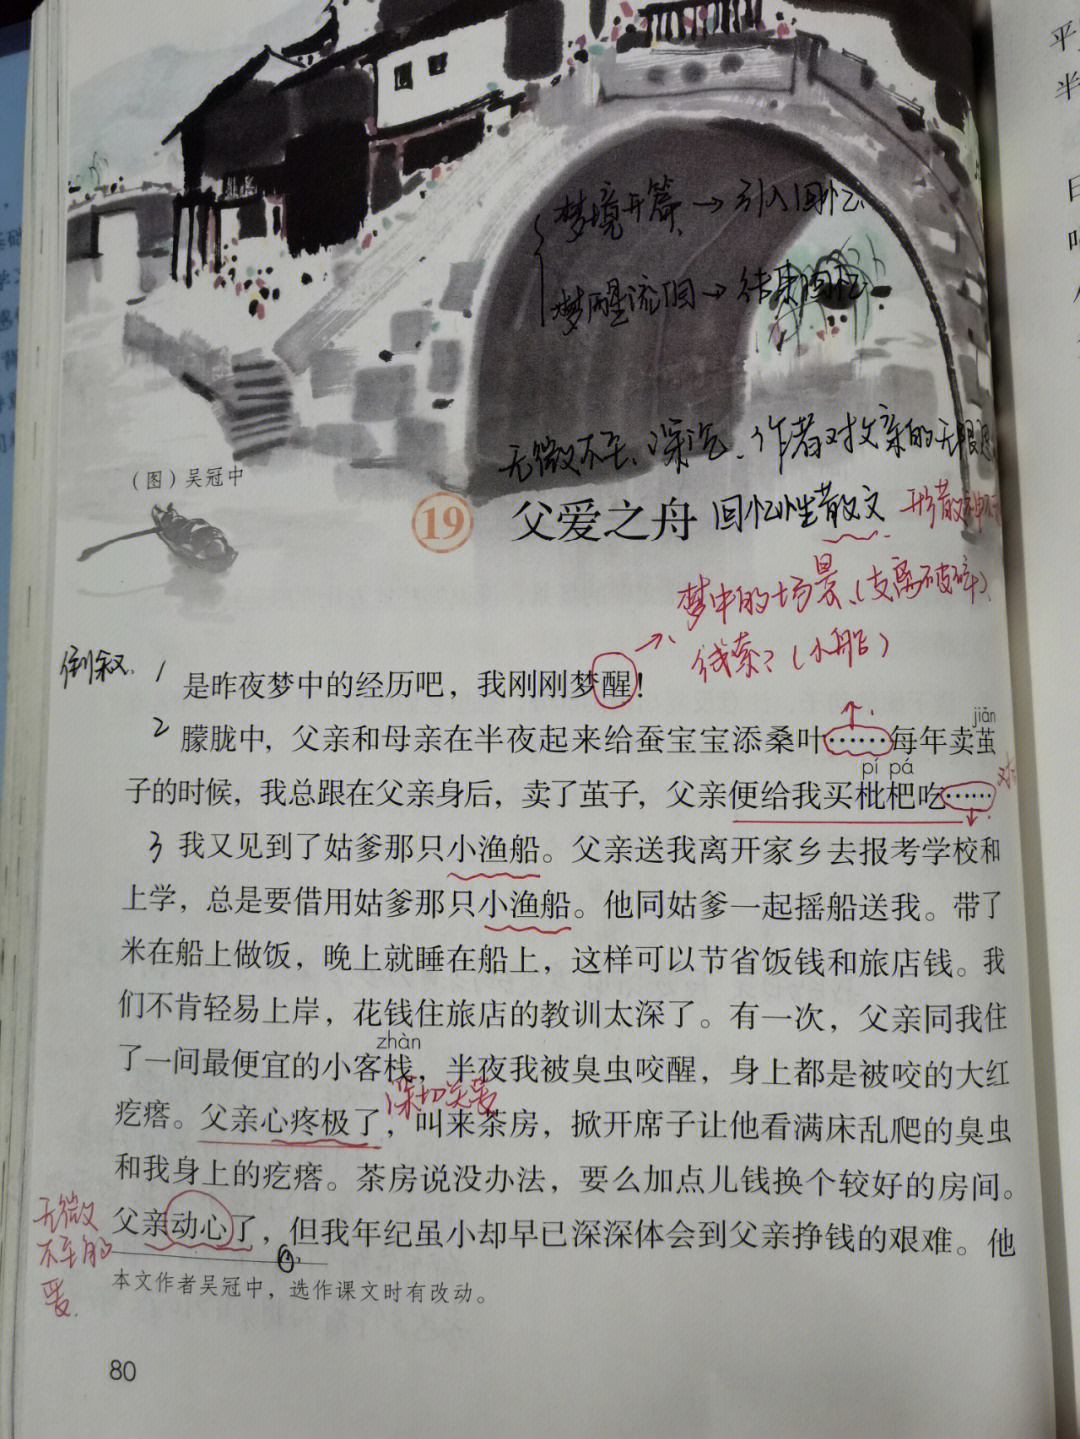 梦境开篇→引入回忆
梦醒流泪→结束回忆
无微不至、深沉、作者对父亲的无限
(图)吴冠中
19 父爱之舟 回忆性散文 形散神不
梦中的场景、(支离破碎)、
→、线索?(小船)
倒叙、 1 是昨夜梦中的经历吧，我刚刚梦醒！
jiǎn
2 朦胧中，父亲和母亲在半夜起来给蚕宝宝添桑叶……每年卖茧
pí pá
子的时候，我总跟在父亲身后，卖了茧子，父亲便给我买枇杷吃……
3 我又见到了姑爹那只小渔船。父亲送我离开家乡去报考学校和
上学，总是要借用姑爹那只小渔船。他同姑爹一起摇船送我。带了
米在船上做饭，晚上就睡在船上，这样可以节省饭钱和旅店钱。我
们不肯轻易上岸，花钱住旅店的教训太深了。有一次，父亲同我住
zhàn
了一间最便宜的小客栈，半夜我被臭虫咬醒，身上都是被咬的大红
深切关爱
疙瘩。父亲心疼极了，叫来茶房，掀开席子让他看满床乱爬的臭虫
和我身上的疙瘩。茶房说没办法，要么加点儿钱换个较好的房间。
无微
不至的
爱、
父亲动心了，但我年纪虽小却早已深深体会到父亲挣钱的艰难。他
本文作者吴冠中，选作课文时有改动。
80
平
半